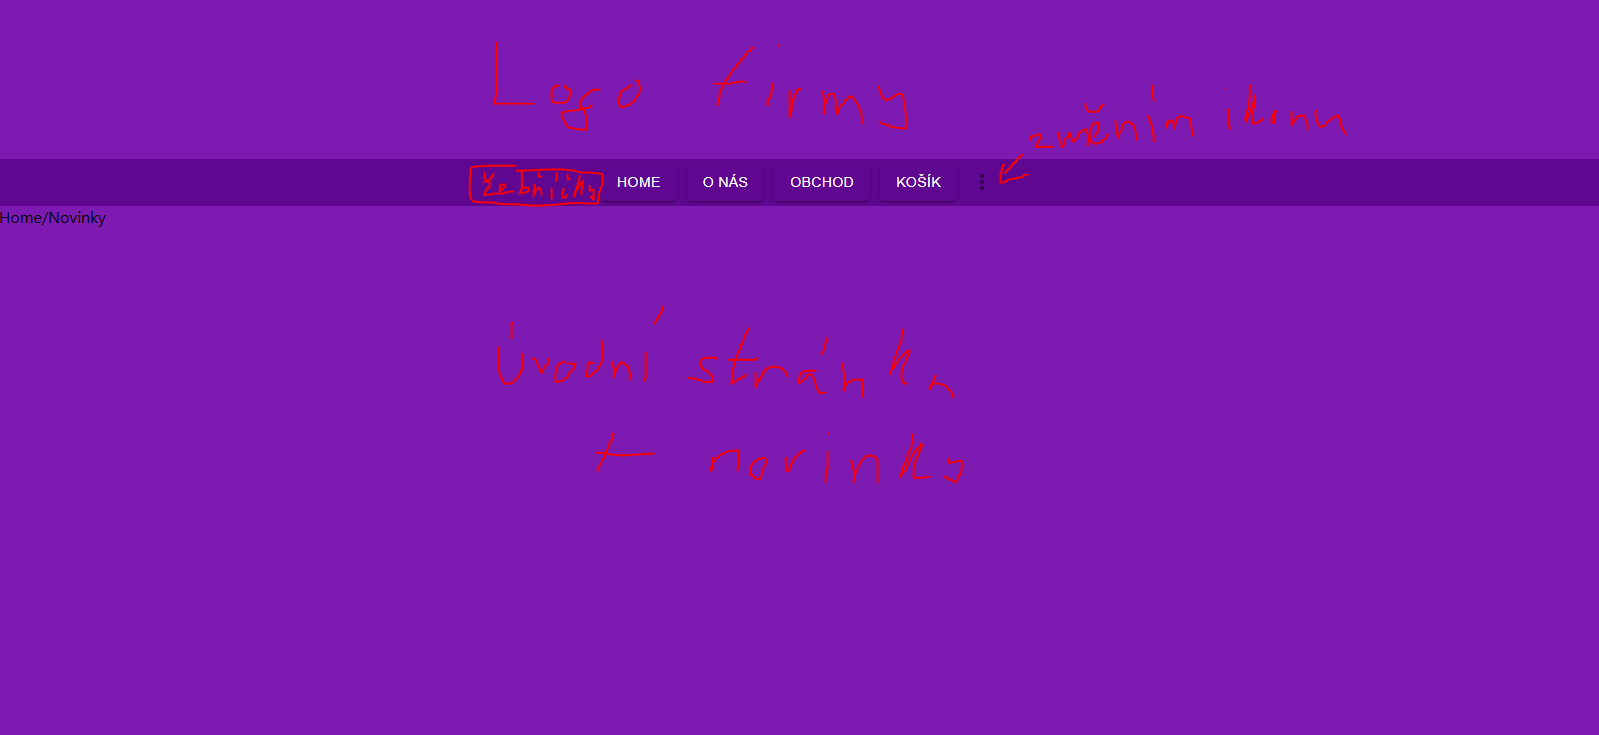 Logo firmy
změním ikonu
Žebříčky HOME O NÁS OBCHOD KOŠÍK
Home/Novinky
Úvodní stránka
+ novinky